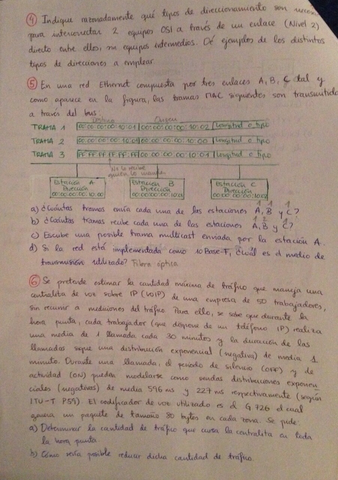 ④ Indique razonadamente qué tipos de direccionamiento son
para interconectar 2 equipos OSI a través de un enlace (Nivel 2)
directo entre ellos, no equipos intermedios. Dé ejemplos de los distintos
tipos de direcciones a emplear.
⑤ En una red Ethernet compuesta por tres enlaces A, B, C tal y
como aparece en la figura, las tramas MAC siguientes son transmitidas
a través del bus.
Destino Origen
TRAMA 1 Longitud o tipo
TRAMA 2 Longitud o tipo
TRAMA 3 FF FF FF FF FF FF Longitud o tipo
Estación A Estación B Estación C
Dirección Dirección Dirección
a) ¿Cuántas tramas envía cada una de las estaciones A, B y C?
b) ¿Cuántas tramas recibe cada una de las estaciones A, B y C?
c) Escribe una posible trama multicast enviada por la estación A.
d) Si la red está implementada como 10Base-F, ¿cuál es el medio de
transmisión utilizado? Fibra óptica
⑥ Se pretende estimar la cantidad máxima de tráfico que maneja una
centralita de voz sobre IP (VoIP) de una empresa de 50 trabajadores,
sin recurrir a mediciones del tráfico. Para ello, se sabe que durante la
hora punta, cada trabajador (que dispone de un teléfono IP) realiza
una media de 1 llamada cada 30 minutos y la duración de las
llamadas sigue una distribución exponencial (negativa) de media 1
minuto. Durante una llamada, el periodo de silencio (OFF) y de
actividad (ON) pueden modelarse como sendas distribuciones exponen-
ciales (negativas) de media 596 ms y 227 ms respectivamente (según
ITU-T P59). El codificador de voz utilizado es el G 726 el cual
genera un paquete de tamaño 80 bytes en cada Se pide:
a) Determinar la cantidad de tráfico que cursa la centralita en toda
la hora punta.
b) Cómo sería posible reducir dicha cantidad de tráfico.